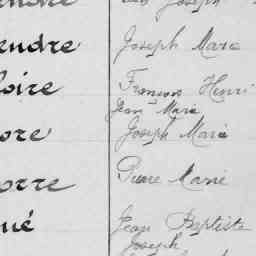 Joseph
endre Joseph Marc
oire François Henri
Jean Marie
ore Joseph Marie
orre Pierre Marie
ué Jean Baptiste
Joseph